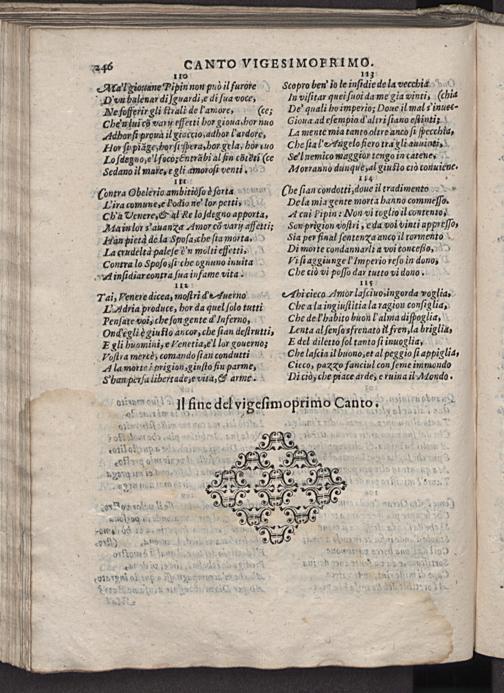 246
CANTO VIGESIMOPRIMO.
110
Ma'l giouane Pipin non può il furore
D'vn balenar di sguardi, e di sua voce,
Ne sofferir gli strali de l'amore, (ce;
Che'n lui cō varÿ effetti hor gioua, hor nuo
Adhor si proua il giaccio, adhor l'ardore,
Hor si piāge, hor si spera, hor gela, hor cuo
Lo sdegno, e'l foco; ent'rābi al fin (ce
Sedano il mare, e gli amorosi venti.
111
Contra Obelerio ambitioso è sorta
L'ira comune, e l'odio ne' lor petti,
Ch'à Venere, & al Re lo sdegno apporta,
Ma in lor s'auanza Amor cō varÿ affetti;
Han pietà de la Sposa, che sia morta.
La crudeltà palese è'n molti effetti,
Contra lo Sposo, si che ognuno inuita
A insidiar contra sua infame vita.
112
Tai, Venere dicea, mostri d'Auerno
L'Adria produce, hor da quel solo tutti
Pensate voi, che son gente d'Inferno,
Ond'egli è giusto ancor, che sian destrutti,
E gli huomini, e Venetia, e'l lor gouerno;
Vostra mercè, comando sian condutti
A la morte i prigion, giusto fin parme,
S'han persa libertade, e vita, & arme.
113
Scopro ben' io le insidie de la vecchia
In visitar quei suoi da me gia vinti, (chia
De' quali ho imperio; Doue il mal s'inuec-
Gioua ad esempio d'altri siano estinti;
La mente mia tanto oltre anco si specchia,
Che sia l'Angelo fiero tra gli auuinti,
Se'l nemico maggior tengo in catene,
Morranno dunque, al giusto ciò conuiene.
114
Che sian condotti, doue il tradimento
De la mia gente morta hanno commesso.
A cui Pipin: Non vi toglio il contento;
Son prigion vostri, e da voi vinti appresso,
Sia per final sentenza anco il tormento
Di morte condannarli à voi concesso,
Vi si aggiunge l'Imperio reso in dono,
Che ciò vi posso dar tutto vi dono.
115
Ahi cieco Amor lasciuo, ingorda voglia,
Che a la ingiustitia la ragion consiglia,
Che de l'habito buon l'alma dispoglia,
Lenta al senso sfrenato il fren, la briglia,
E del diletto sol tanto si inuoglia,
Che lascia il buono, et al peggio si appiglia,
Cieco, pazzo fanciul con seme immondo
Di ciò, che piace arde, e ruina il Mondo.
Il fine del vigesimoprimo Canto.